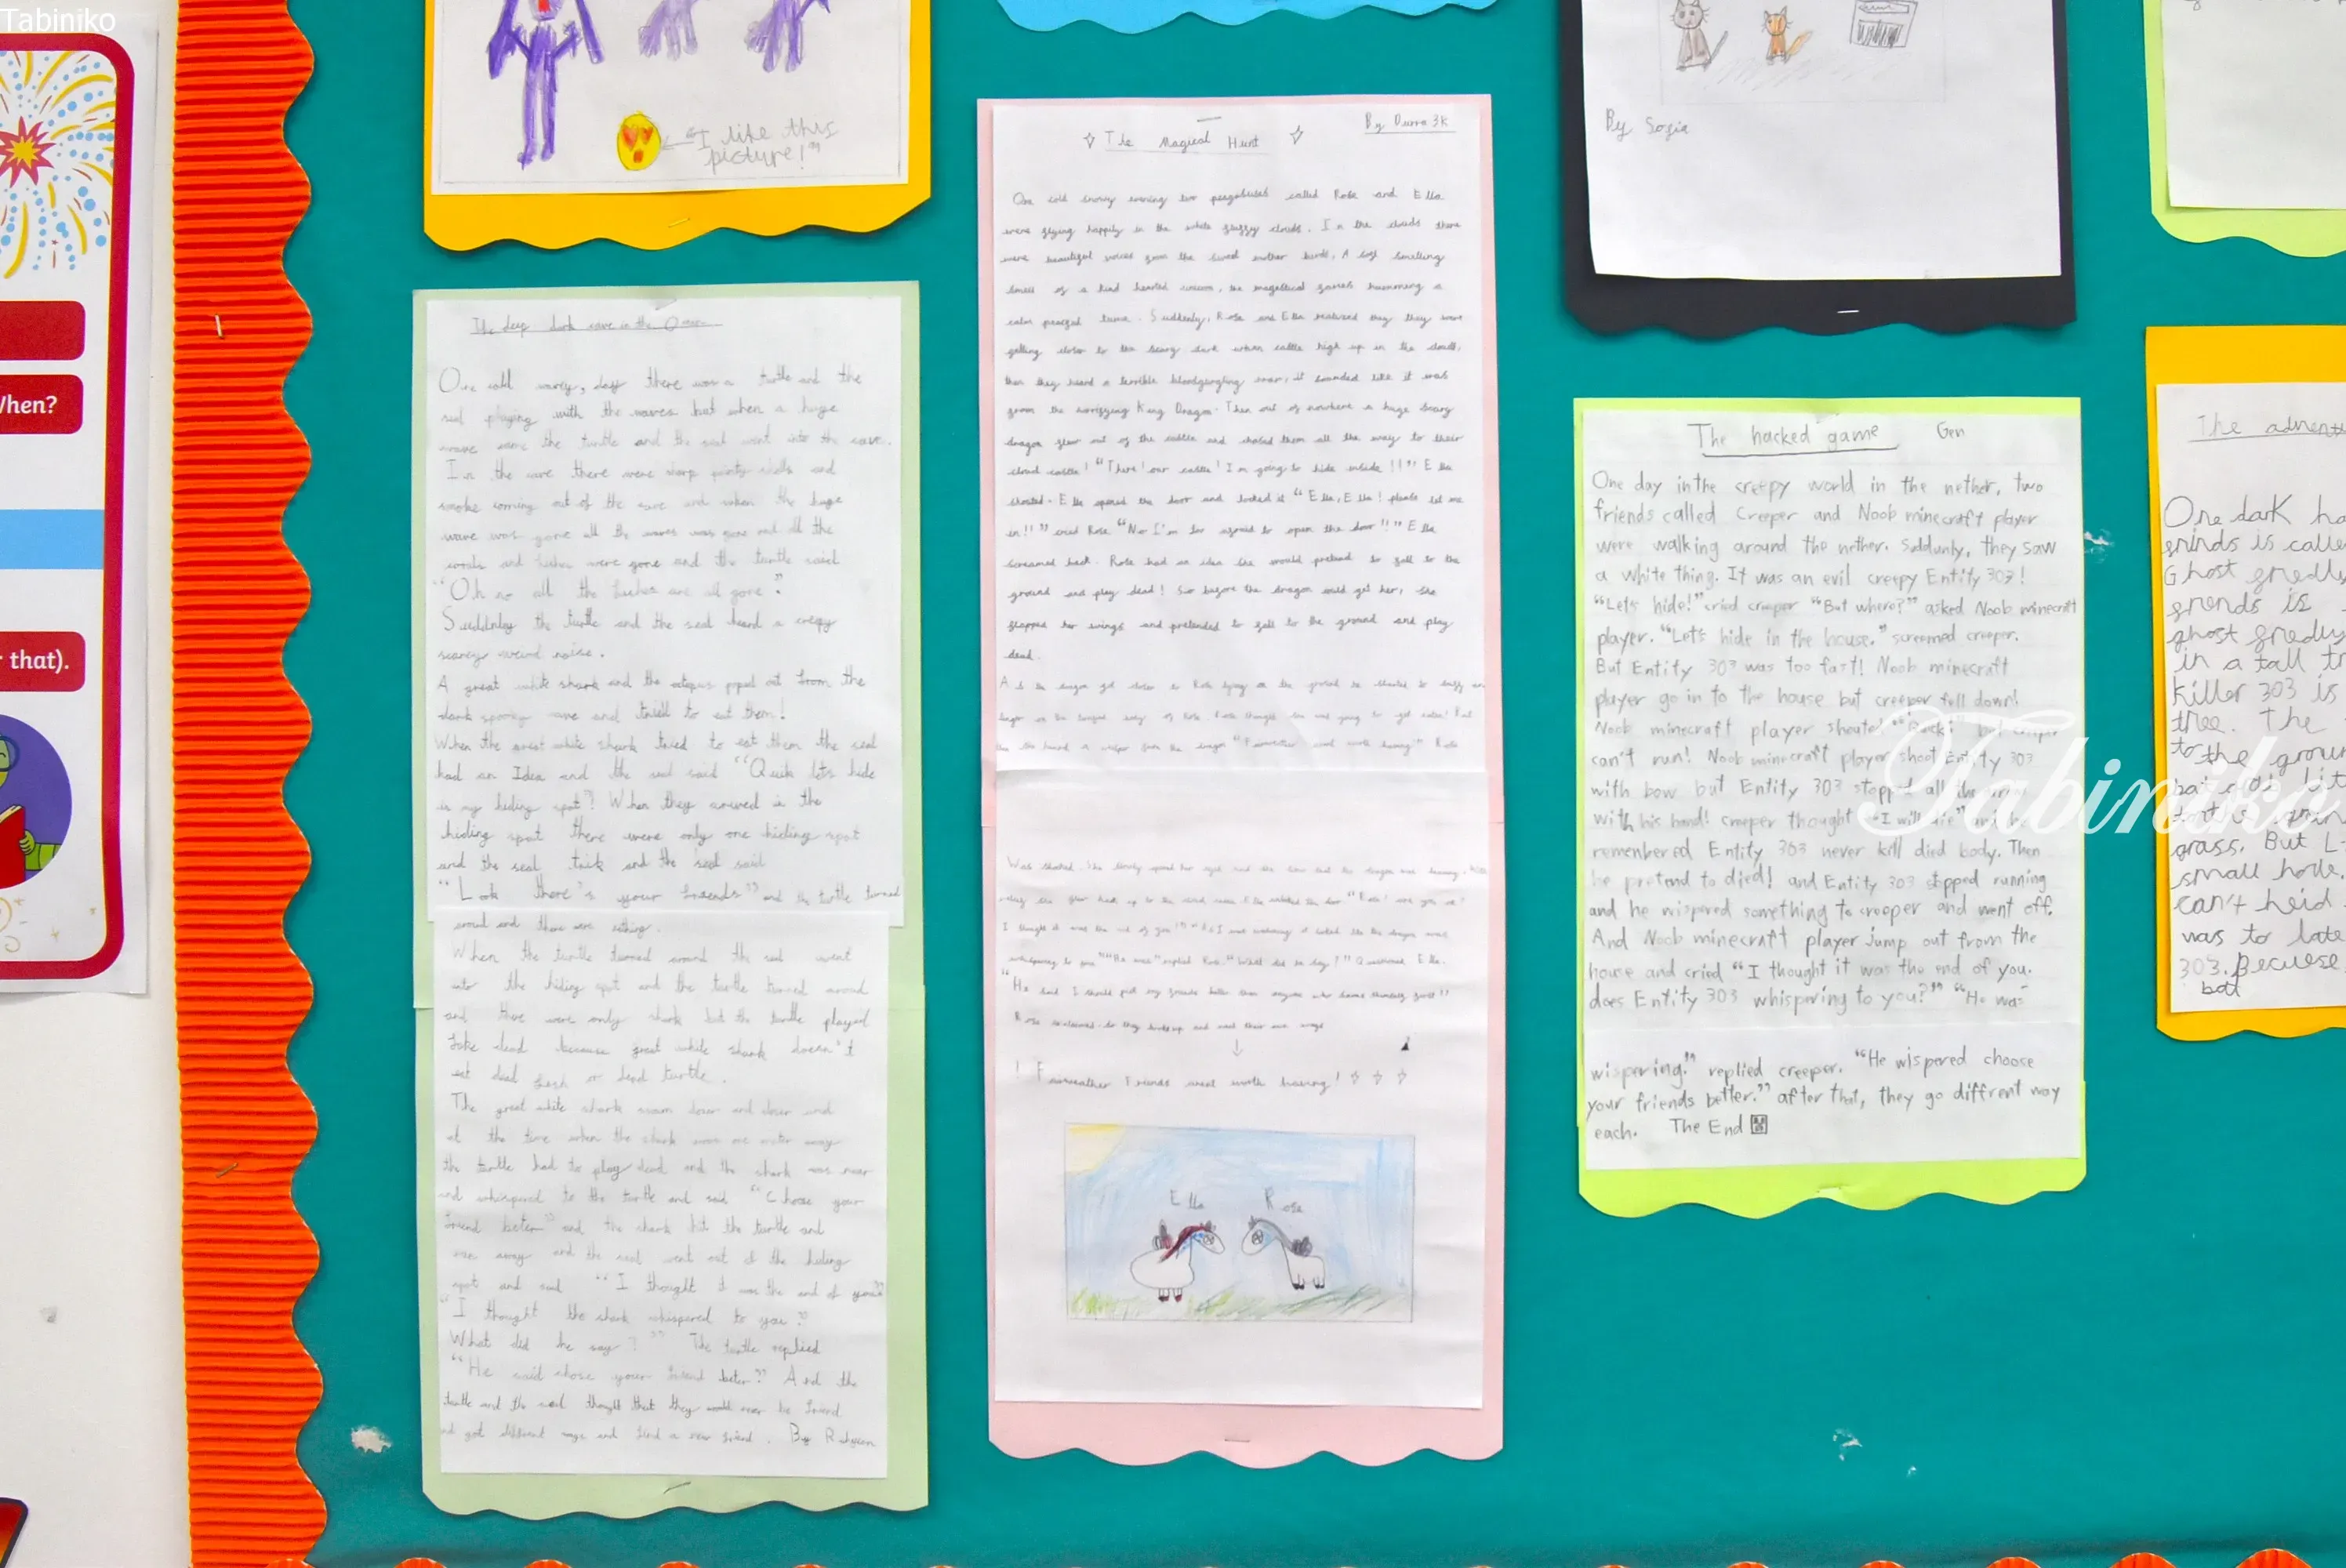 Tabiniko
When?
that).
"I like this
picture!"
The deep dark cave in the
One cold wavey, day there was a turtle and the
seal playing with the waves but when a huge
wave came the turtle and the seal went into the cave.
In the cave there were sharp pointy shells and
smoke coming out of the cave and when the huge
wave was gone all the waves was gone and all the
corals and fishes were gone and the turtle said
"Oh no all the fishes are all gone".
Suddnley the turtle and the seal heard a creepy
scarey weird noise.
A great white shark and the octopus poped out from the
dark spooky cave and tried to eat them!
When the great white shark tried to eat them the seal
had an Idea and the seal said "Quik lets hide
in my hiding spot"! When they arrived in the
hiding spot there were only one hiding spot
and the seal trick and the seal said
"Look there's your friends" and the turtle turned
around and there were nothing.
When the turtle turned around the seal went
into the hiding spot and the turtle turned around
and there were only shark but the turtle played
fake dead because great white shark doesn't
eat dead fish or dead turtle.
The great white shark swam closer and closer and
at the time when the shark was one meter away
the turtle had to play dead and the shark was near
and whispered to the turtle and said "Chose your
friend beter" and the shark hit the turtle and
ran away and the seal went out of the hiding
spot and said "I thought it was the end of you"
"I thought the shark whispered to you?
What did he say?" The turtle replied
"He said chose your friend beter" And the
turtle and the seal thought that they would never be friend
and got different ways and find a new friend. By
The Magical Hunt
By Durra 3K
One cold snowy evening two pegasuses called Rose and Ella
were flying happily in the white fluffy clouds. In the clouds there
were beautiful voices from the mother birds, A soft smelling
smell of a kind hearted unicorn, the magestical humming a
calm peaceful tune. Suddenly, Rose and Ella realized they they were
getting closer to the scary dark castle high up in the clouds,
then they heard a terrible bloodgurgling roar, it sounded like it was
from the horrifying King Dragon. Then out of nowhere a huge scary
dragon flew out of the castle and chased them all the way to their
cloud castle! "There! our castle! I'm going to hide inside!!" Ella
shouted. Ella opened the door and locked it "Ella, Ella! please let me
in!!" cried Rose "No I'm too afraid to open the door!!" Ella
screamed back. Rose had an idea she would pretend to fall to the
ground and play dead! So before the dragon could get her, she
flapped her wings and pretended to fall to the ground and play
dead.
As the dragon got closer to Rose lying on the ground he started to
body of Rose. Rose thought she was going to get eaten! But
then she heard a whisper from the dragon "Fairweather having" Rose
Was shocked. She slowly opened her eyes and she saw that the dragon was
she flew back up to the Ella unlocked the door "Rose! are you ok?
I thought it was the end of you!!" I was it looked like the dragon was
whispering to you" "He was" replied Rose. "What did he say?" Questioned Ella.
"He said I should pick my friends better than anyone who
Rose exclaimed. So they and went their own ways
! Fairweather Friends arent worth having!
Ella
Rose
By Sofia
The hacked game Gen
One day in the creepy world in the nether, two
friends called Creeper and Noob minecraft player
were walking around the nether. Suddunly, they saw
a white thing. It was an evil creepy Entity 303!
"Let's hide!" cried creeper "But where?" asked Noob minecraft
player. "Let's hide in the house." screamed creeper.
But Entity 303 was too fast! Noob minecraft
player go in to the house but creeper fell down!
Noob minecraft player shouted "Quick! but creeper
can't run! Noob minecraft player shoot Entity 303
with bow but Entity 303 stopped all the
with his hand! creeper thought "I will die"
remenbered Entity 303 never kill died body. Then
he pretend to died! and Entity 303 stpped running
and he wispered something to creeper and went off.
And Noob minecraft player jump out from the
house and cried "I thought it was the end of you.
does Entity 303 whispering to you?" "He was
wispering!" replied creeper. "He wispered choose
your friends better." after that, they go diffrent way
each. The End
The advent
One dark
frinds is calle
Ghost
frends is
ghost
in a tall tr
Killer 303 is
tree. The
to the groun
grass. But L
small hole.
can't heid
was to late
303. Becuese
bat
Tabiniko